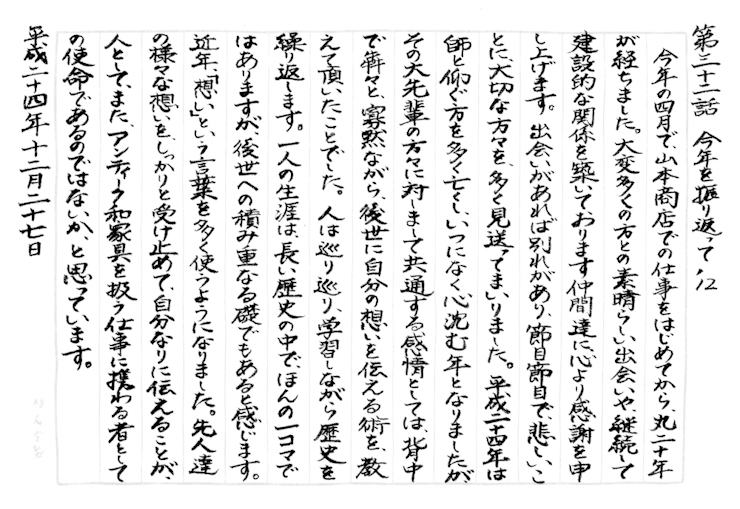 第三十二話　今年を振り返って'12
今年の四月で、山本商店での仕事をはじめてから、丸二十年
が経ちました。大変多くの方との素晴らしい出会いや、継続して
建設的な関係を築いております仲間達に心より感謝を申
し上げます。出会いがあれば別れがあり、節目節目で、悲しいこ
とに、大切な方々を、多く見送ってまいりました。平成二十四年は
師と仰ぐ方を多く亡くし、いつになく心沈む年となりましたが、
その大先輩の方々に対しまして共通する感情としては、背中
で犇々と、寡黙ながら、後世に自分の想いを伝える術を、教
えて頂いたことでした。人は巡り巡り、学習しながら歴史を
繰り返します。一人の生涯は、長い歴史の中で、ほんの一コマで
はありますが、後世への積み重なる礎でもあると感じます。
近年、「想い」という言葉を多く使うようになりました。先人達
の様々な想いを、しっかりと受け止めて、自分なりに伝えることが、
人として、また、アンティーク和家具を扱う仕事に携わる者として
の使命であるのではないか、と思っています。
平成二十四年十二月二十七日